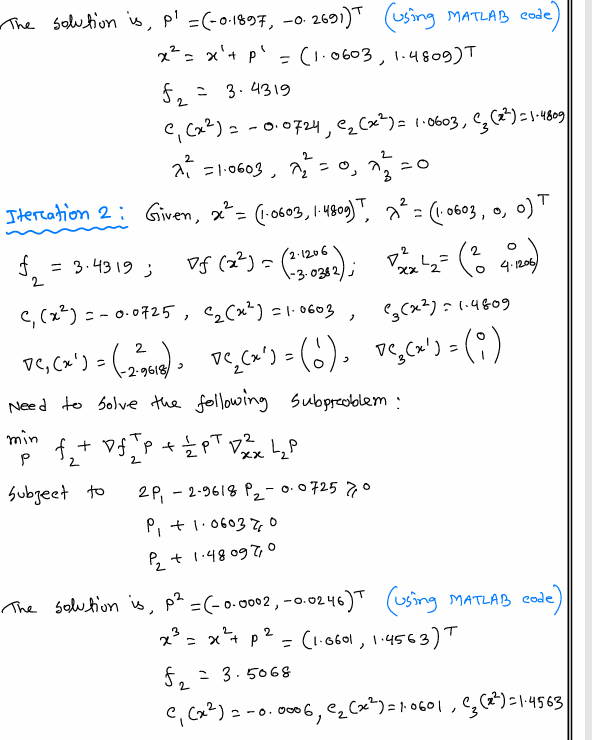 The solution is, p¹ = (-0.1897, -0.2691)ᵀ (using MATLAB code)
x² = x¹ + p¹ = (1.0603, 1.4809)ᵀ
f₂ = 3.4319
c₁(x²) = -0.0724, c₂(x²) = 1.0603, c₃(x²) = 1.4809
λ₁² = 1.0603, λ₂² = 0, λ₃² = 0
Itercation 2: Given, x² = (1.0603, 1.4809)ᵀ, λ² = (1.0603, 0, 0)ᵀ
f₂ = 3.4319; ∇f(x²) = (2.1206 -3.0382); ∇²ₓₓ L₂ = (2 0 0 4.1206)
c₁(x²) = -0.0725, c₂(x²) = 1.0603, c₃(x²) = 1.4809
∇c₁(x¹) = (2 -2.9618), ∇c₂(x¹) = (1 0), ∇c₃(x¹) = (0 1)
Need to solve the following subproblem:
min p f₂ + ∇f₂ᵀp + 1/2 pᵀ ∇²ₓₓ L₂p
Subject to 2p₁ - 2.9618 p₂ - 0.0725 ≥ 0
p₁ + 1.0603 ≥ 0
p₂ + 1.4809 ≥ 0
The solution is, p² = (-0.0002, -0.0246)ᵀ (using MATLAB code)
x³ = x² + p² = (1.0601, 1.4563)ᵀ
f₂ = 3.5068
c₁(x²) = -0.0006, c₂(x²) = 1.0601, c₃(x²) = 1.4563